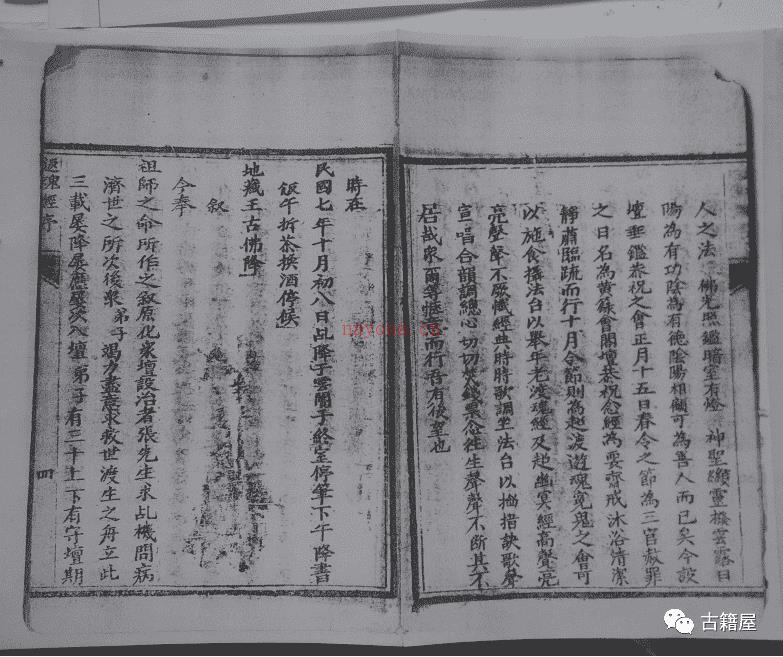 人之法 佛光照鑑暗室有燈 神聖顯靈撥雲露日
陽為有功陰為有德陰陽相顧可為善人而已矣今設
壇垂鑑恭祝之會正月十五日春令之節為三官赦罪
之日名為黄籙會開壇恭祝念經為要齋戒沐浴清潔
靜肅臨疏而行十月令節則為超渡遊魂寃鬼之會可
以施食撰法台以舉年老渡魂經及超幽冥經高聲亮
亮聲聲不厭懺經典時時歌調坐法台以搯指訣歌聲
宣唱合韻調總心切切焚錢票念往生聲聲不斷其不
哉衆爾等 而行吾有後望也
時在
民國七年十月初八日乩降于雲閣于終室停筆下午降書
飯午折茶換酒停候
地藏王古佛降
叙
今奉
祖師之命所作之叙原化衆壇設治者張先生求乩機問病
濟世之所次後衆弟子竭力盡意求救世渡生之舟立此
三載屡降屡 屡次入壇弟子有三十上下有守壇期
經序
四
nayona.cn
古籍屋